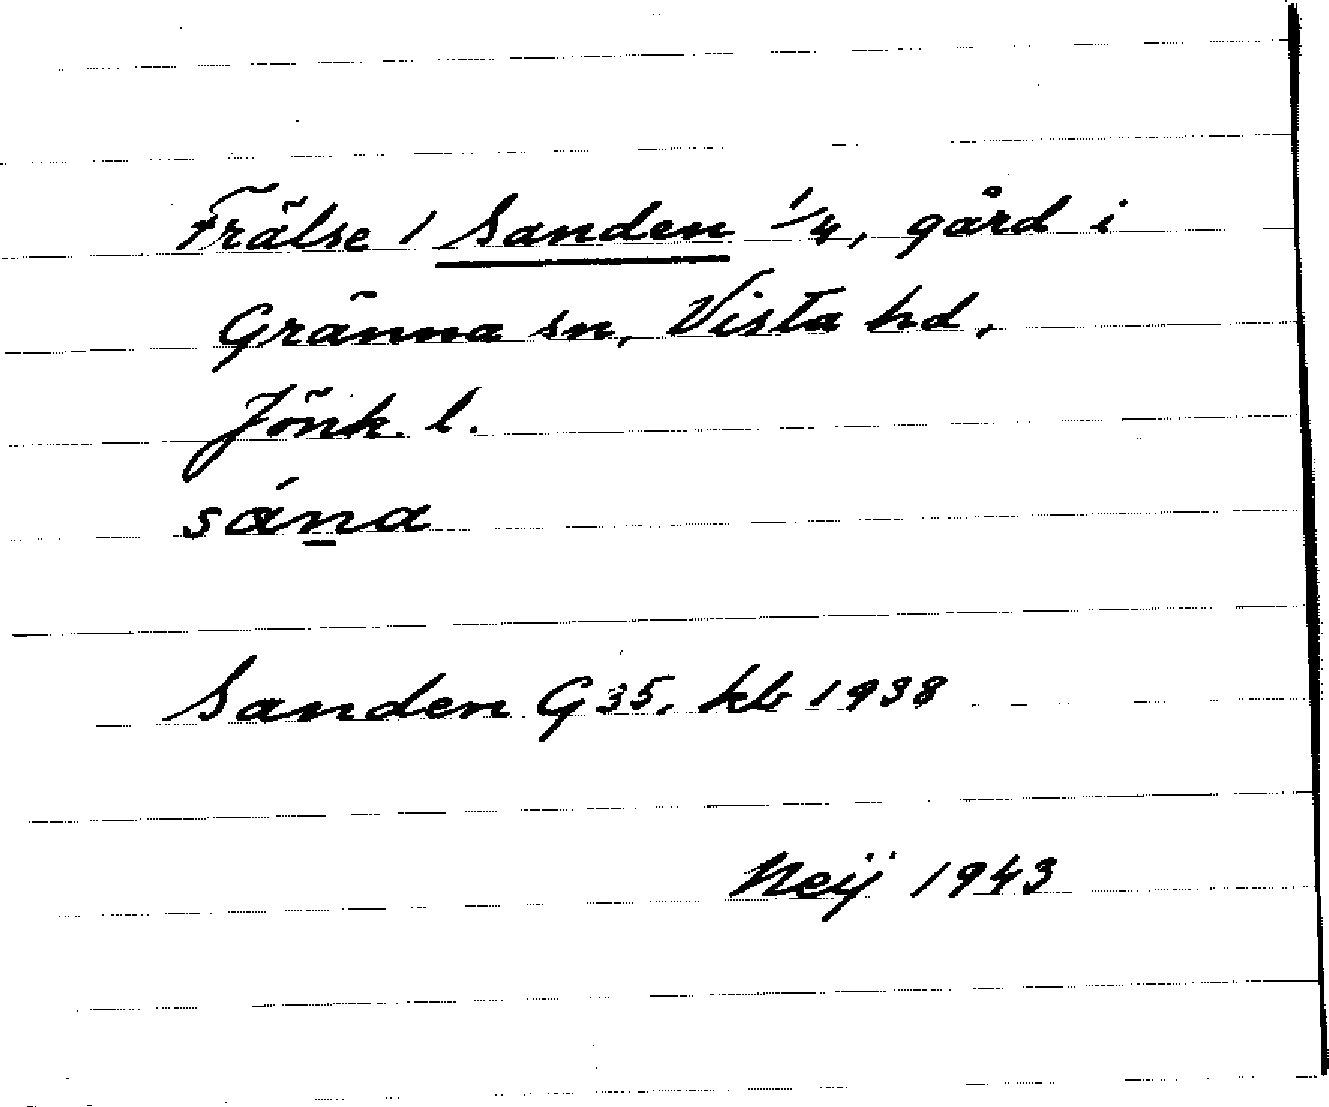 Frälse 1 Sanden 1/4, gård i
Gränna sn, Vista hd,
Jönk. l.
sána
Sanden G35. kb 1938
Neij 1943